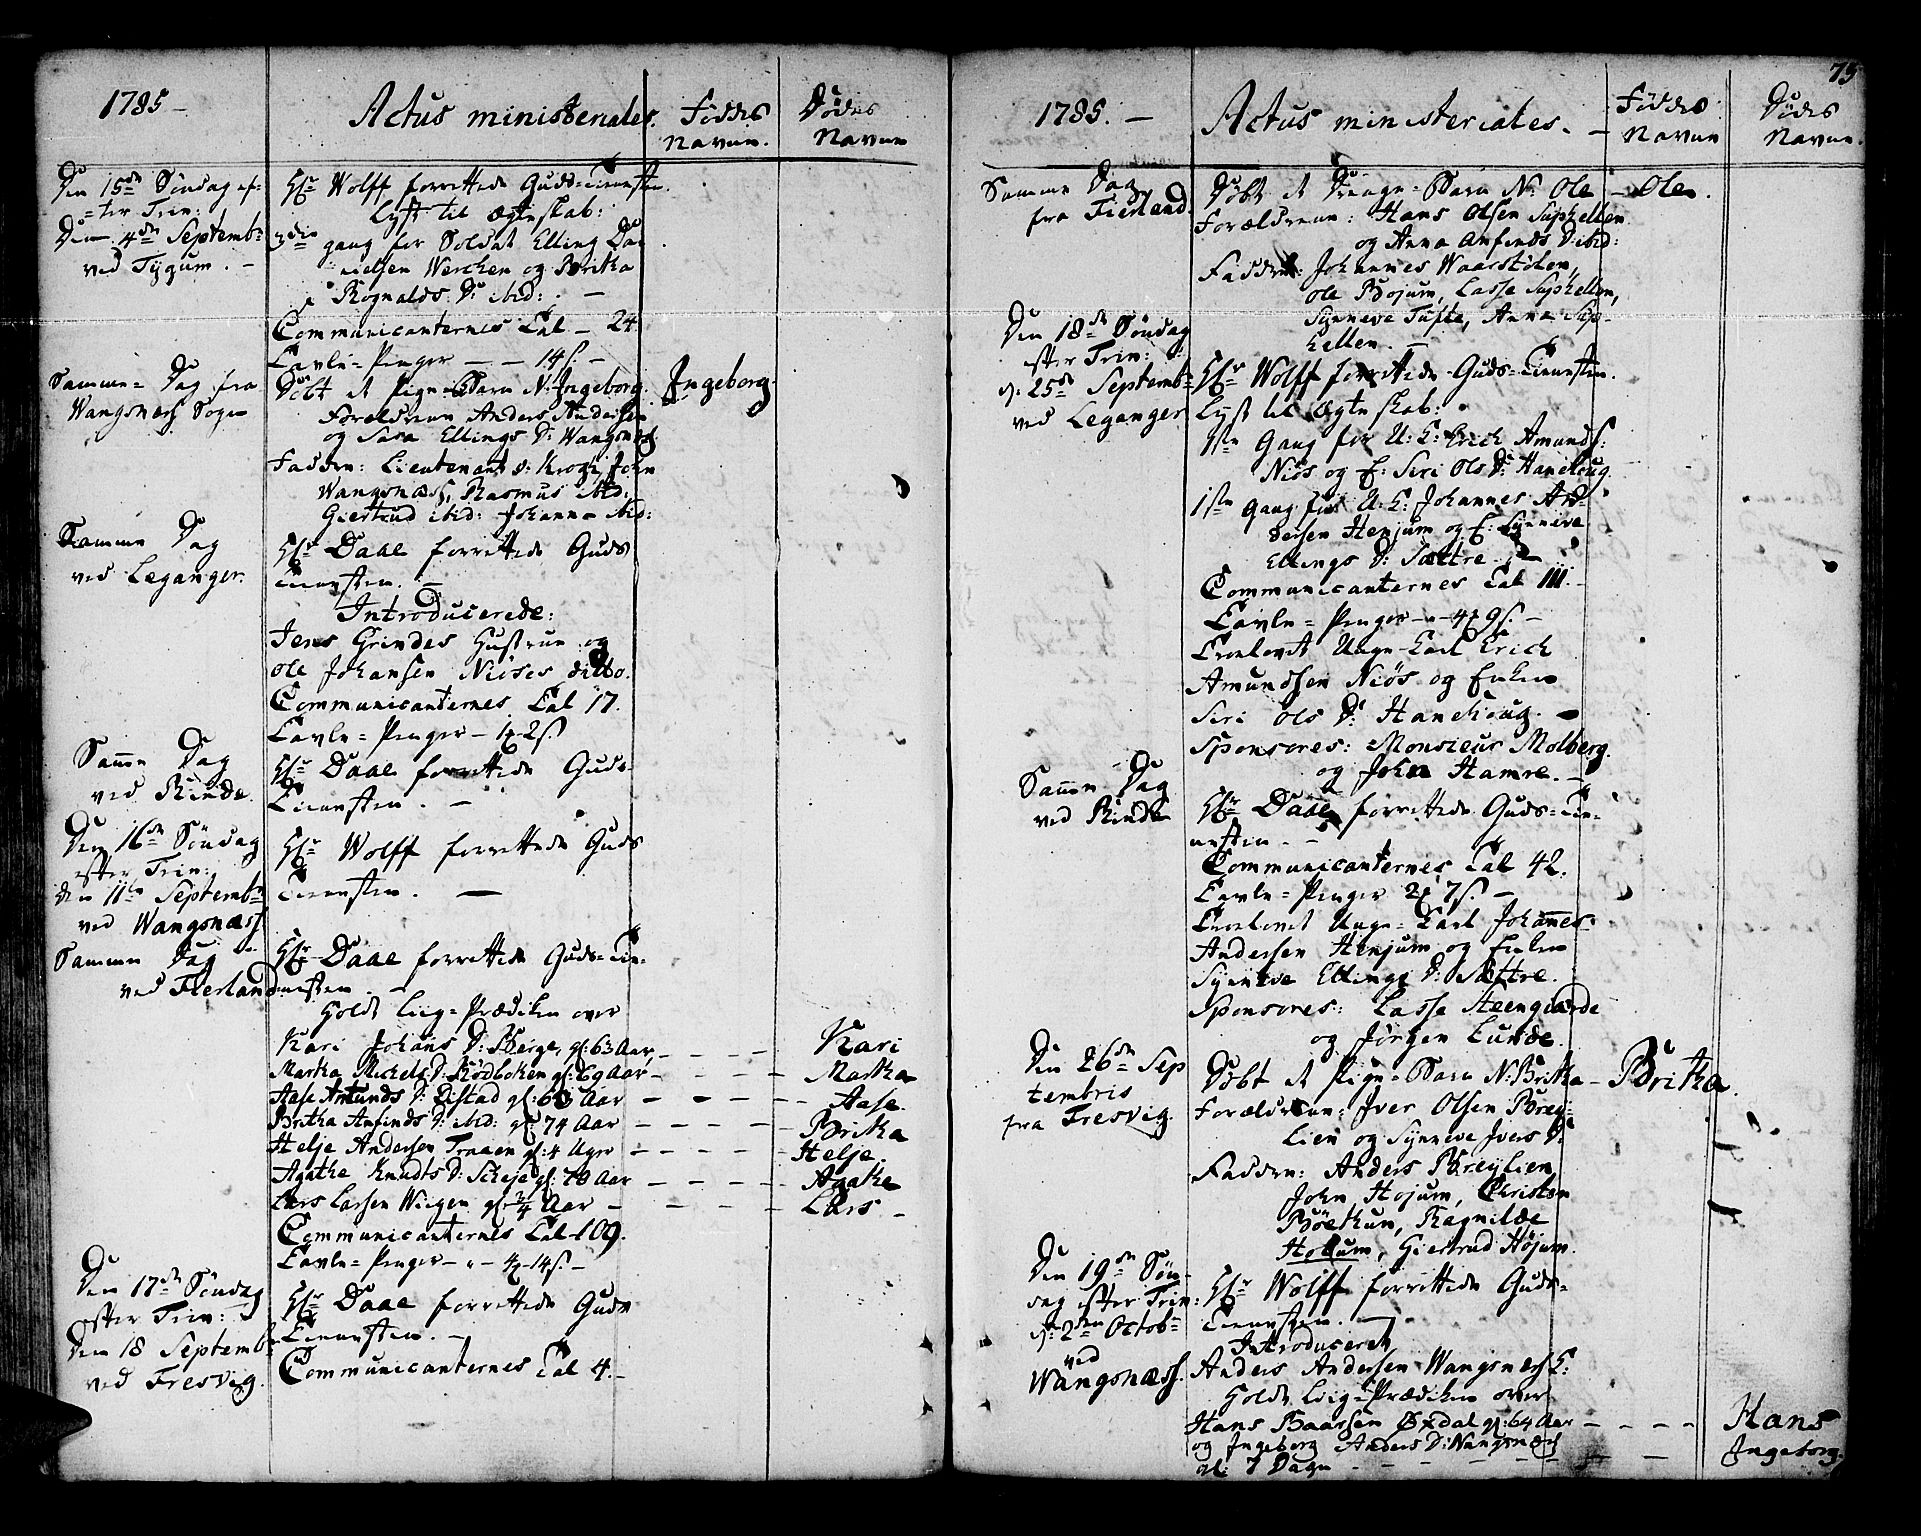 1785 –
Actus ministeriales.
Föddes
Navne.
Dödes
Navne
Den 15de Söndag ef=
=ter Trin:
Den 4de Septemb:
ved Tygum. –
Hr Wolff forrettede Guds=Tienesten.
Lyst til Ægteskab:
3die gang for Soldat Elling Da=
nielsen Werchen og Britha
Rognalds D: ibid: . –
Communicanternes Tal – 24
Tavle=Penger – – 14 s. –
Samme Dag fra
Wangsness Sogn
Döbt et Pige=Barn N: Ingeborg.
Ingeborg.
Forældrene Anders Andersen
og Sara Ellings D: Wangsness.
Faddere: Lieutenant v: Krogh, John
Wangsness, Rasmus ibid:
Giertrud ibid: Johanna ibid:
Samme Dag
ved Leganger.
Hr Daae forrettede Guds
Tienesten. –
Introducerede:
Jens Grindes Hustrue og
Ole Johansen Niöses ditto.
Communicanternes Tal 17.
Tavle=Penger – 1 2 s.
Samme Dag
ved Rinde.
Hr Daae forrettede Guds=
Tienesten. –
Den 16de Söndag
efter Trin:
den 11te Septemb:
ved Wangsness.
Hr Wolff forrettede Guds
Tienesten. –
Samme Dag
ved Fierland
Hr Daae forrettede Guds=Tie=
nesten. –
Holdt Liig=Prædiken over
Kari Johans D: Berge, gl: 63 Aar, – – – – Kari
Martha Michels D: Rödboken gl: 69 Aar – – – – Martha
Aase Amunds D: Distad gl: 63 Aar – – – – Aase.
Britha Anfinds D: ibid: gl: 74 Aar – – – – Britha
Helje Andersen Traaen gl: 4 Uger – – – – Helje.
Agathe Knudts D: Skeje gl: 70 Aar – – – – Agathe
Lars Larsen Wiigen gl: 2/4 Aar – – – – Lars –
Communicanternes Tal – 109.
Tavle=Penger – – 4 14 s. –
Den 17de Söndag
efter Trin:
Den 18 Septemb:
ved Fresvig.
Hr Daae forrettede Guds
Tienesten. –
Communicanternes Tal 4. –
75
1785. –
Actus ministeriales. –
Föddes
Navne
Dödes
Navne.
Samme Dag
fra Fierland.
Döbt et Drenge=Barn N: Ole – Ole.
Forældrene: Hans Olsen Suphellen
og Anna Anfinds D: ibid:
Faddere: Johannes Waarstölen,
Ole Bojum, Lasse Suphellen,
Synneve Tufte, Anna Sup=
hellen. –
Den 18de Söndag
efter Trin:
d: 25de Septemb:
ved Leganger
Hr Wolff forrettede Guds=Tienesten.
Lyst til Ægteskab:
1ste Gang for U: K: Erich Amunds:
Niös og E: Seri Ols D: Hanehoug.
1ste gang for U: K: Johannes An=
dersen Henjum og E: Synneve
Ellings D: Sættre. –
Communicanternes Tal 111. –
Tavle=Penger – 4 9 s. –
Trolovet Unge=Karl Erich
Amundsen Niös og Enken
Seri Ols D: Hanehoug. –
Sponsores: Monsieur Molberg.
og John Hamre. –
Samme Dag
ved Rinde
Hr Daae forrettede Guds=Tie=
nesten. –
Communicanternes Tal 42.
Tavle=Penger 2 7 s. –
Trolovet Unge=Karl Johannes
Andersen Henjum og Enken
Synneve Ellings D: Sættre.
Sponsores: Lasse Steengiærde
og Jörgen Lunde.
Den 26de Sep
tembris
fra Fresvig.
Döbt et Pige=Barn N: Britha – Britha.
Forældrene: Iver Olsen Brey=
Lien og Synneve Ivers D:
Faddere: Anders Breylien,
John Hojum, Christen
Böethun, Ragnilde
Hojum, Giertrud Höjum.
Den 19de Sön=
dag efter Trin:
d: 2den Octob:
ved
Wangsness.
Hr Wolff forrettede Guds=
Tienesten. –
Introduceret
Anders Andersen Wangsness K:
Holdt Liig=Prædiken over
Hans Baarsen Öxdal gl: 64 Aar – – – – Hans
og Ingeborg Anders D: Wangsness
gl: 7 Dage – – – – – – Ingeborg.